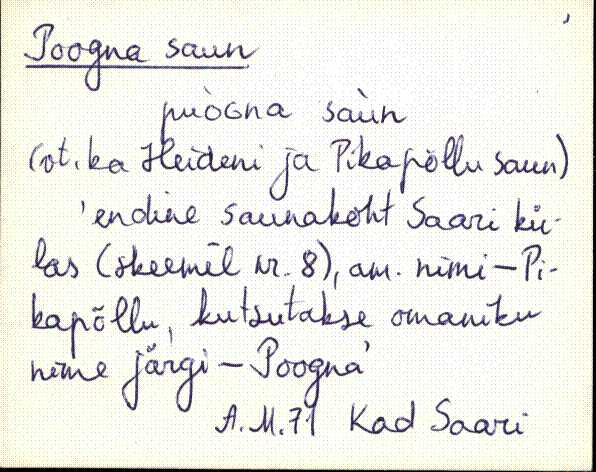 Poogna saun
puògna saùn
(vt. ka Heideni ja Pikapõllu saun)
'endine saunakoht Saari kü-
las (skeemil nr. 8), am. nimi – Pi-
kapõllu, kutsutakse omaniku
nime järgi – Poogna'
A.M. 71 Kad Saari